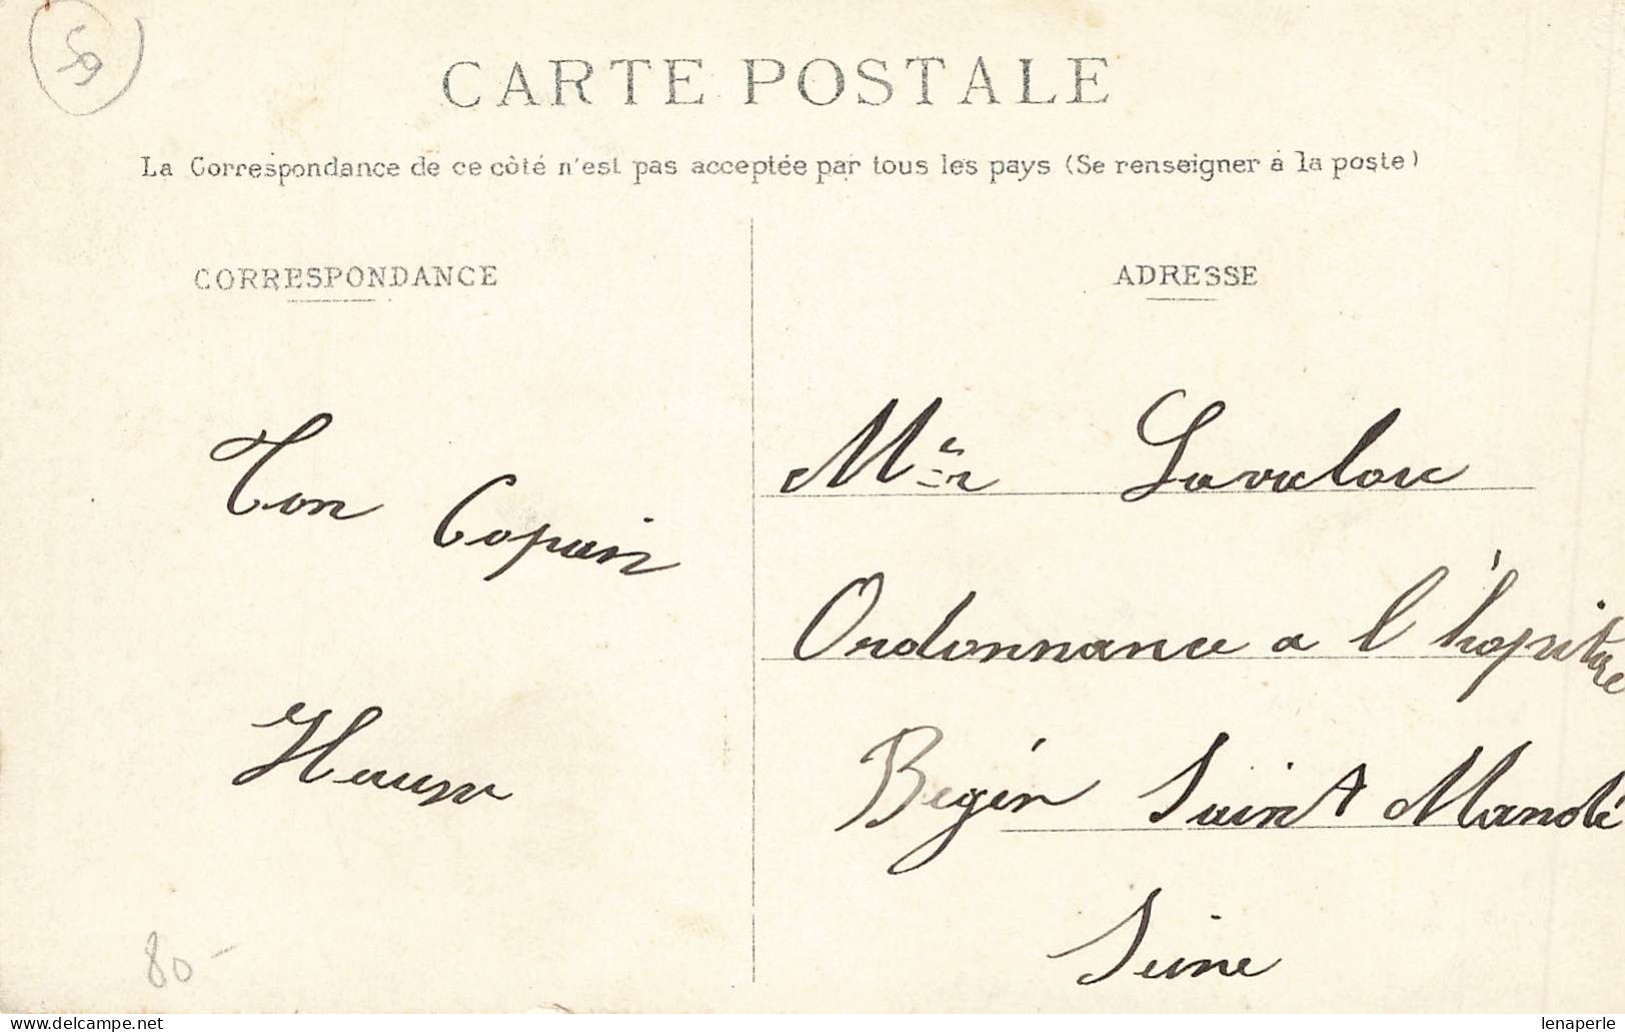 59
CARTE POSTALE
La Correspondance de ce côté n'est pas acceptée par tous les pays (Se renseigner à la poste)
CORRESPONDANCE
ADRESSE
Ton Copain
Mr
Ordonnance a l'hopital
Begin Saint Mandé
Seine
80-
lenaperle